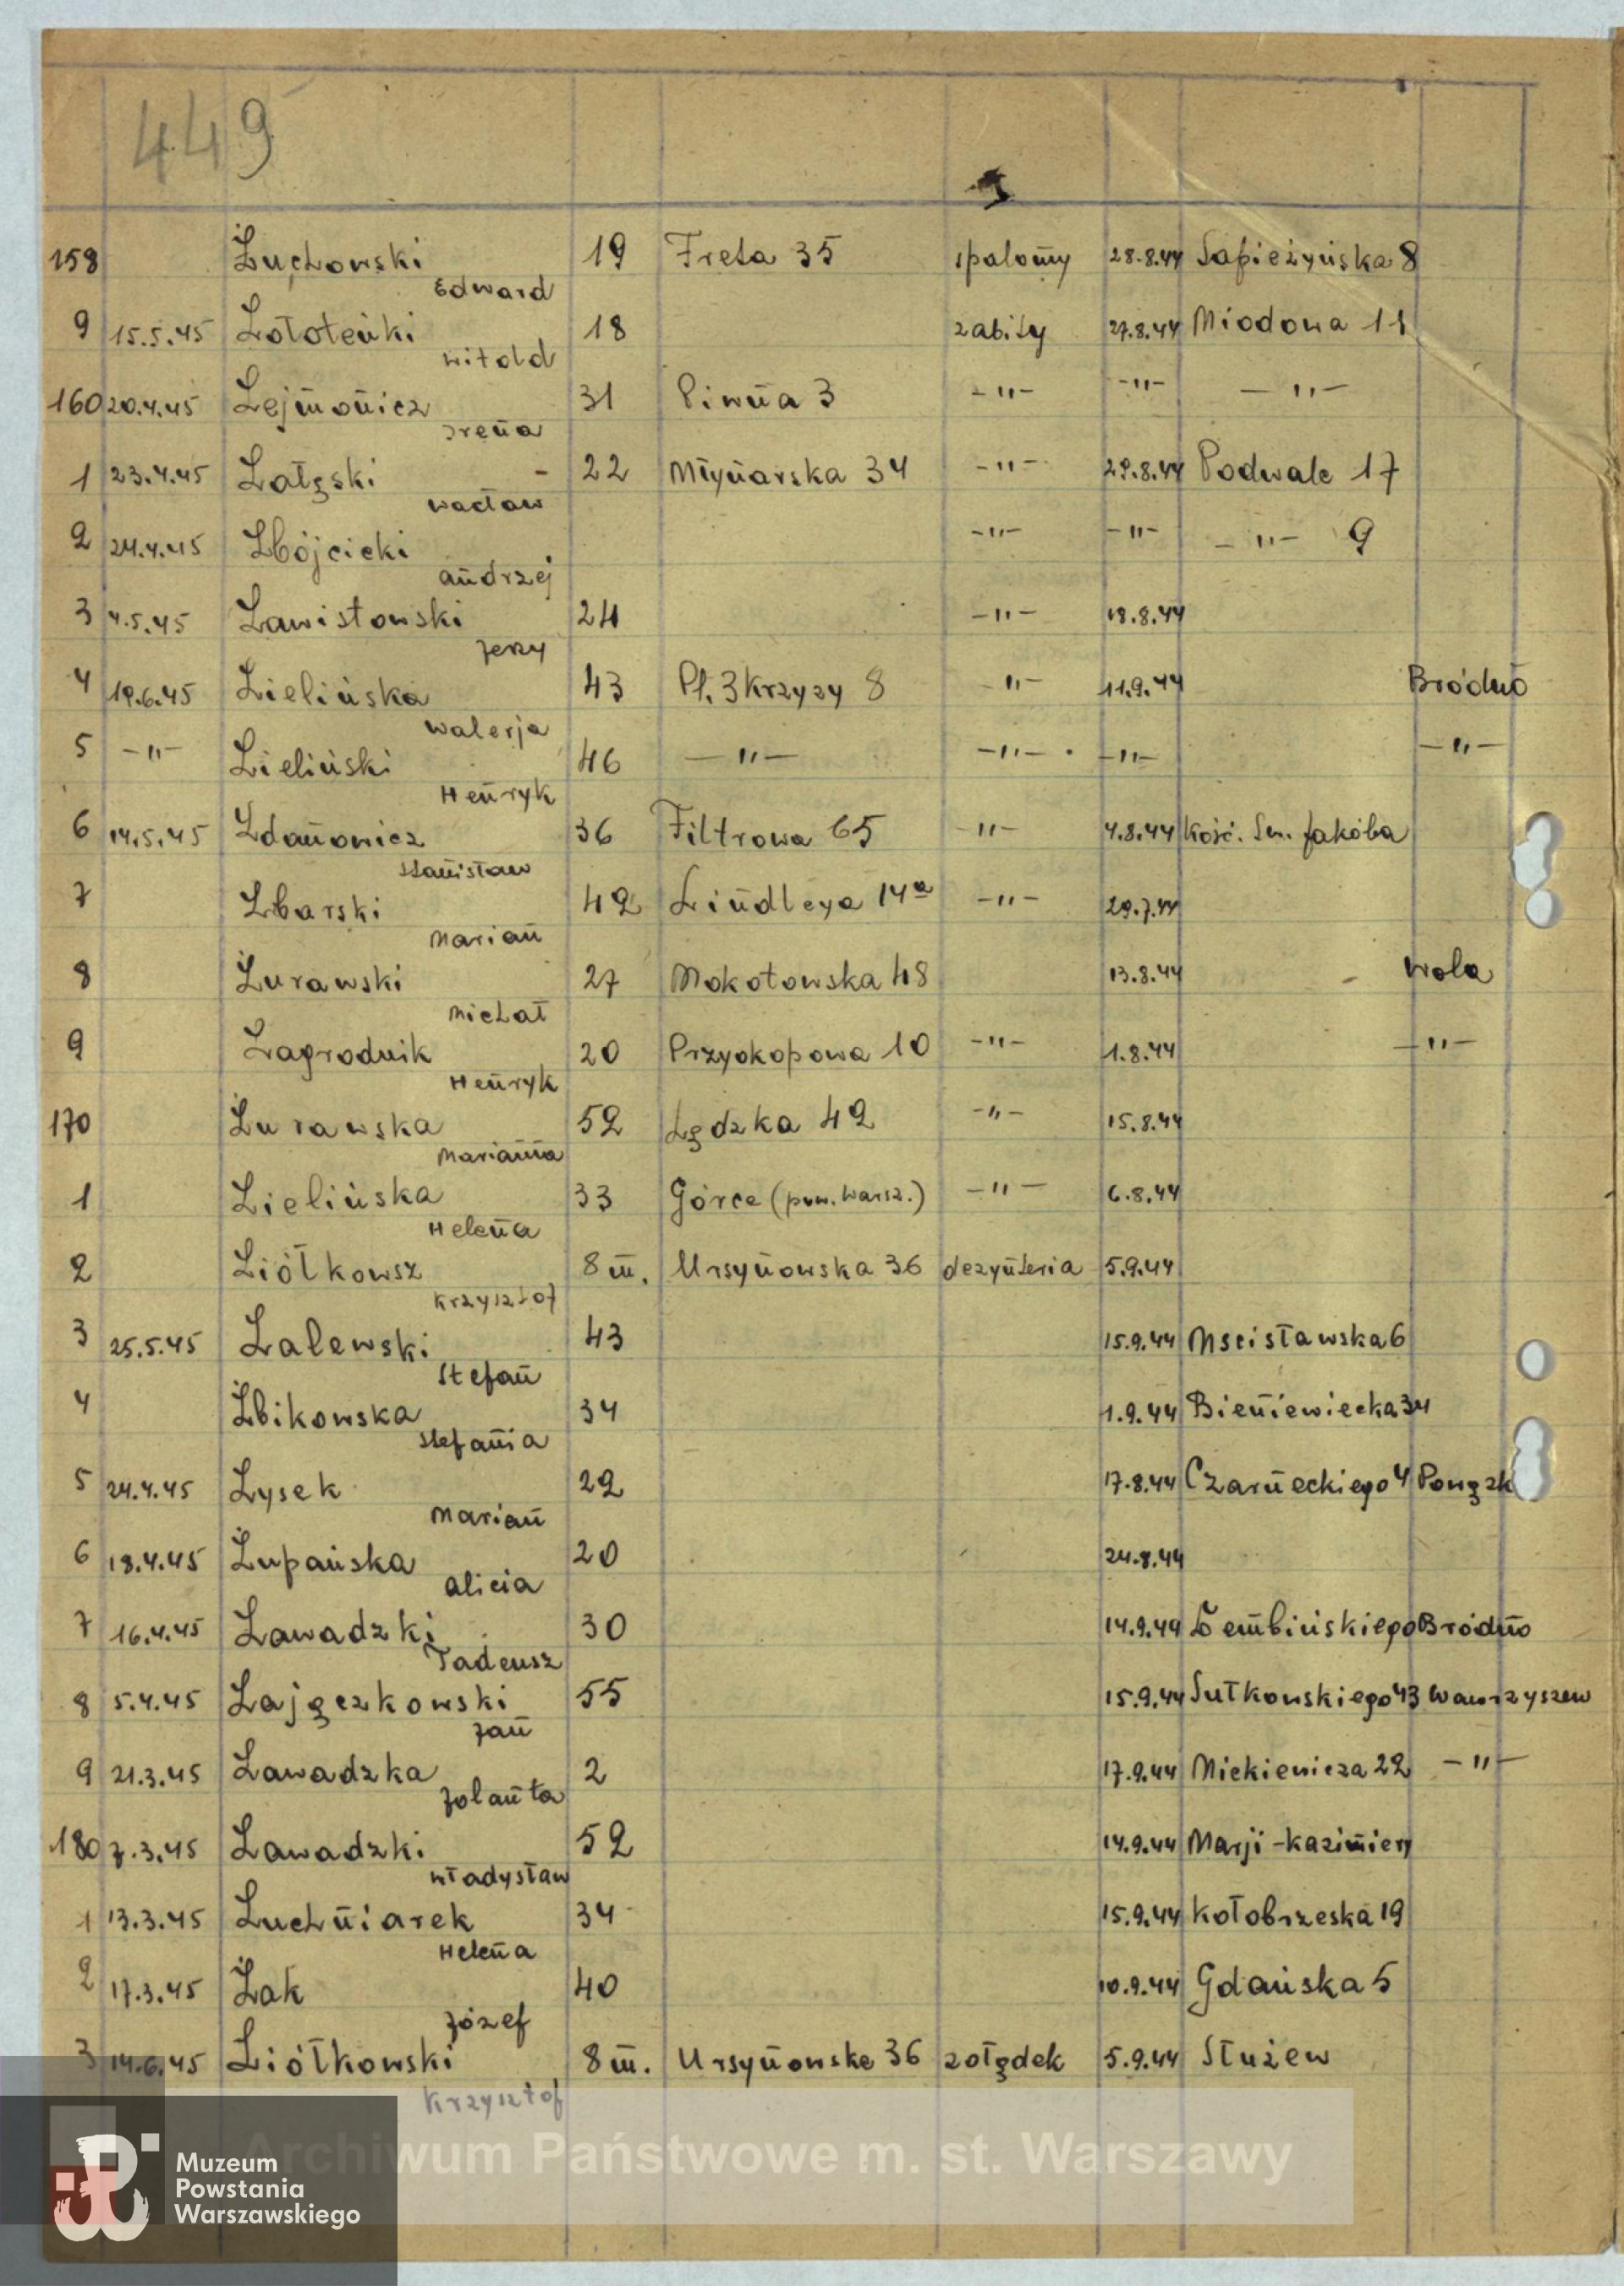 449
158 Żuchowski 19 Freta 35 spalony 28.8.44 Sapieżyńska 8
Edward
9 15.5.45 Zołoteńki 18 zabity 27.8.44 Miodowa 11
Witold
160 20.4.45 Zejmowicz 31 Piwna 3 -"- -"- -"-
Irena
1 23.4.45 Załęski - 22 Młynarska 34 -"- 29.8.44 Podwale 17
Wacław
2 24.4.45 Zbójcicki -"- -"- -"- 9
Andrzej
3 4.5.45 Zawistowski 24 -"- 18.8.44
Jerzy
4 19.6.45 Zielińska 43 Pl. 3 Krzyży 8 -"- 11.9.44 Bródno
Walerja
5 -"- Zieliński 46 -"- -"- -"- -"-
Henryk
6 14.5.45 Zdanowicz 36 Filtrowa 65 -"- 4.8.44 Kość. Św. Jakóba
Stanisław
7 Zbarski 42 Lindleya 14a -"- 29.7.44
Marian
8 Żurawski 27 Mokotowska 48 13.8.44 Wola
Michał
9 Zagrodnik 20 Przyokopowa 10 -"- 1.8.44 -"-
Henryk
170 Żurawska 52 Lędzka 42 -"- 15.8.44
Marianna
1 Zielińska 33 Górce (pow. Warsz.) -"- 6.8.44
Helena
2 Ziółkowsz 8 m. Ursynowska 36 dezynteria 5.9.44
Krzysztof
3 25.5.45 Zalewski 43 15.9.44 Mscisławska 6
Stefan
4 Żbikowska 34 1.9.44 Bieniewiecka 34
Stefania
5 24.4.45 Zysek 22 17.8.44 Czarneckiego 4 Powązk
Marian
6 18.4.45 Żupańska 20 24.8.44
Alicia
7 16.4.45 Zawadzki 30 14.9.44 Dembińskiego Bródno
Tadeusz
8 5.4.45 Zajęczkowski 55 15.9.44 Sułkowskiego 43 Wawrzyszew
Jan
9 21.3.45 Zawadzka 2 17.9.44 Mickiewicza 22 -"-
Jolanta
180 7.3.45 Zawadzki 52 14.9.44 Marji-Kazimiery
Władysław
1 13.3.45 Zuchniarek 34 15.9.44 Kołobrzeska 19
Helena
2 17.3.45 Żak 40 10.9.44 Gdańska 5
Józef
3 14.6.45 Ziółkowski 8 m. Ursynowska 36 żołędek 5.9.44 Służew
Krzysztof
Archiwum Państwowe m. st. Warszawy
Muzeum
Powstania
Warszawskiego